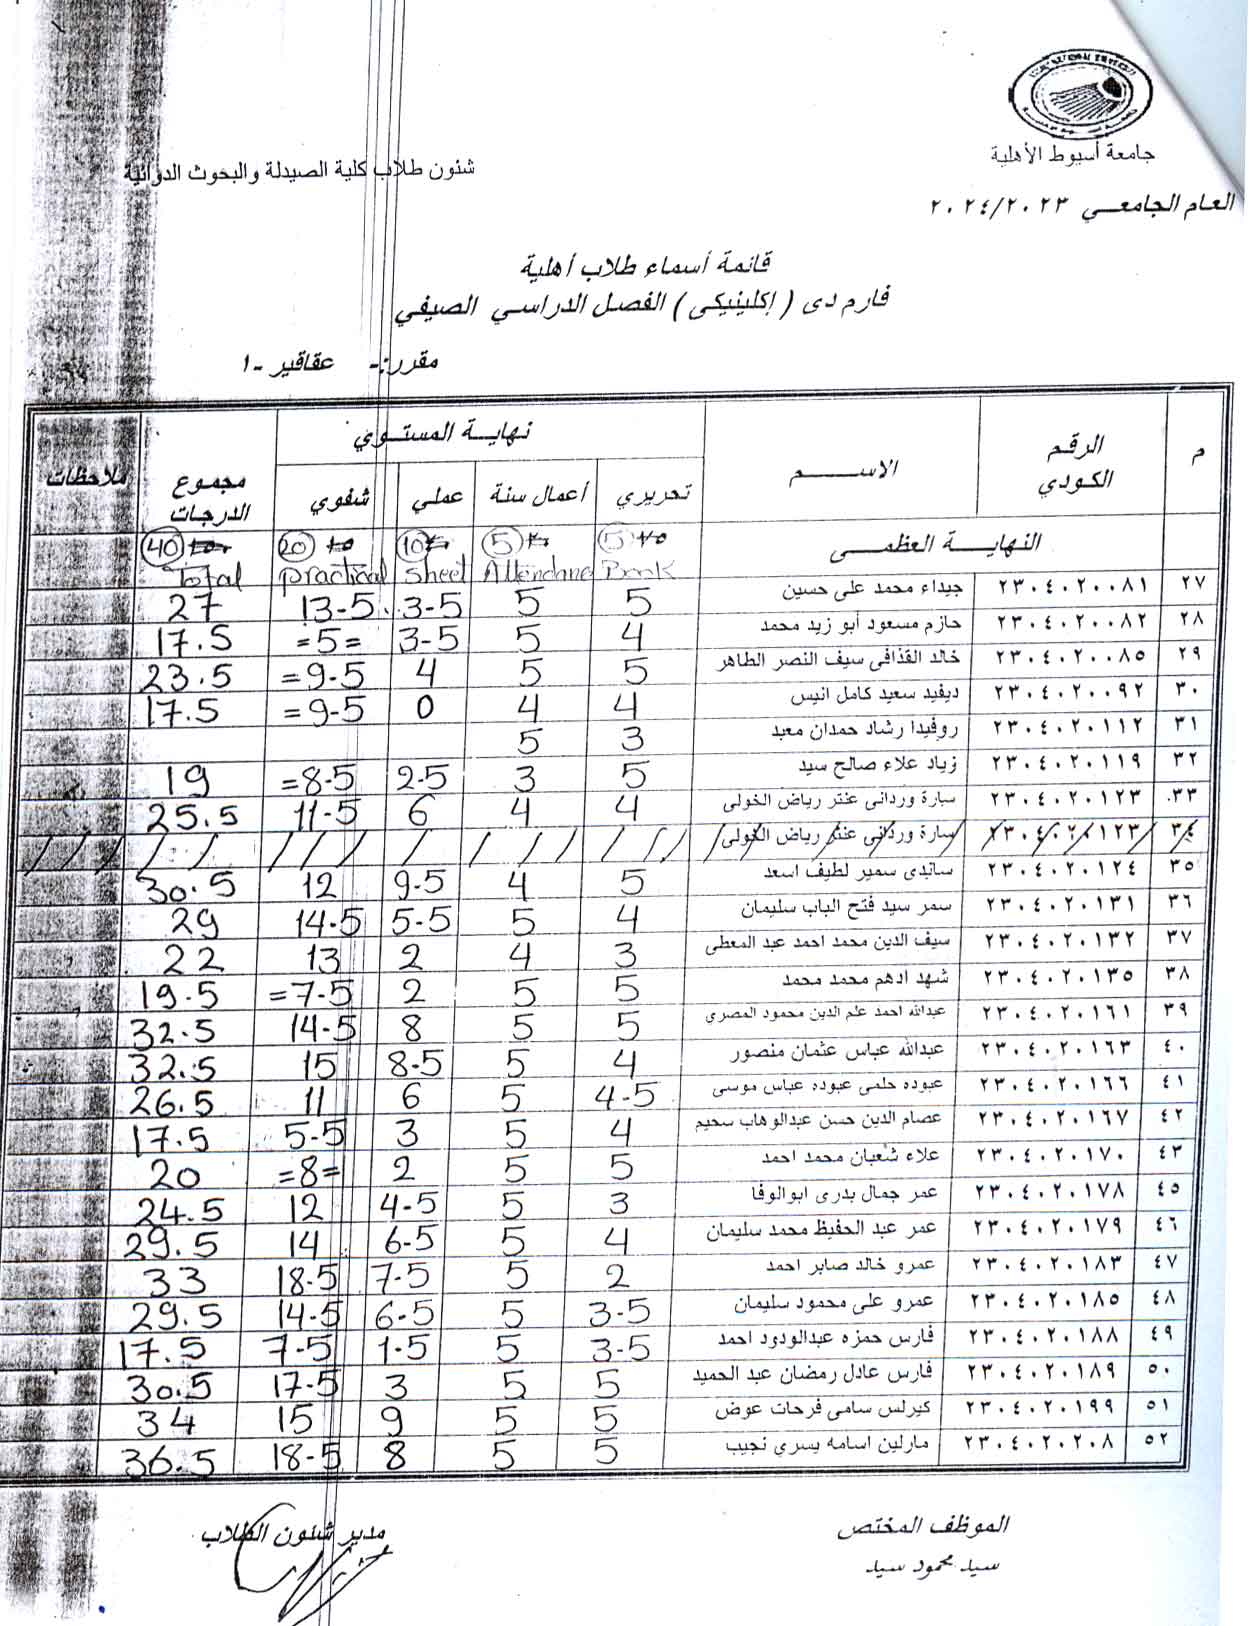 جامعة أسيوط الأهلية
شئون طلاب كلية الصيدلة والبحوث الدوائية
العام الجامعي ٢٠٢٤/٢٠٢٣
قائمة أسماء طلاب أهلية
فارم دى ( إكلينيكى ) الفصل الدراسي الصيفي
مقرر:- عقاقير -١
م الرقم الكودي الاسم نهاية المستوي مجموع الدرجات ملاحظات
تحريري أعمال سنة عملي شفوي
النهاية العظمى 5 5 10 20 40
Book Attendance Sheet Practical Total
٢٧ ٢٣٠٤٠٢٠٠٨١ جيداء محمد على حسين 5 5 3-5 13-5 27
٢٨ ٢٣٠٤٠٢٠٠٨٢ حازم مسعود أبو زيد محمد 4 5 3-5 =5= 17.5
٢٩ ٢٣٠٤٠٢٠٠٨٥ خالد القذافى سيف النصر الطاهر 5 5 4 =9-5 23.5
٣٠ ٢٣٠٤٠٢٠٠٩٢ ديفيد سعيد كامل انيس 4 4 0 =9-5 17.5
٣١ ٢٣٠٤٠٢٠١١٢ روفيدا رشاد حمدان معبد 3 5
٣٢ ٢٣٠٤٠٢٠١١٩ زياد علاء صالح سيد 5 3 2-5 =8-5 19
٣٣ ٢٣٠٤٠٢٠١٢٣ سارة وردانى عنتر رياض الخولى 4 4 6 11-5 25.5
٣٤ ٢٣٠٤٠٢٠١٢٣ سارة وردانى عنتر رياض الخولى
٣٥ ٢٣٠٤٠٢٠١٢٤ ساندى سمير لطيف اسعد 5 4 9-5 12 30.5
٣٦ ٢٣٠٤٠٢٠١٣١ سمر سيد فتح الباب سليمان 4 5 5-5 14-5 29
٣٧ ٢٣٠٤٠٢٠١٣٢ سيف الدين محمد احمد عبد المعطى 3 4 2 13 22
٣٨ ٢٣٠٤٠٢٠١٣٥ شهد ادهم محمد محمد 5 5 2 =7-5 19.5
٣٩ ٢٣٠٤٠٢٠١٦١ عبدالله احمد علم الدين محمود المصري 5 5 8 14-5 32.5
٤٠ ٢٣٠٤٠٢٠١٦٣ عبدالله عباس عثمان منصور 4 5 8-5 15 32.5
٤١ ٢٣٠٤٠٢٠١٦٦ عبوده حلمى عبوده عباس موسى 4-5 5 6 11 26.5
٤٢ ٢٣٠٤٠٢٠١٦٧ عصام الدين حسن عبدالوهاب سحيم 4 5 3 5-5 17.5
٤٣ ٢٣٠٤٠٢٠١٧٠ علاء شعبان محمد احمد 5 5 2 =8= 20
٤٥ ٢٣٠٤٠٢٠١٧٨ عمر جمال بدرى ابوالوفا 3 5 4-5 12 24.5
٤٦ ٢٣٠٤٠٢٠١٧٩ عمر عبد الحفيظ محمد سليمان 4 5 6-5 14 29.5
٤٧ ٢٣٠٤٠٢٠١٨٣ عمرو خالد صابر احمد 2 5 7-5 18-5 33
٤٨ ٢٣٠٤٠٢٠١٨٥ عمرو على محمود سليمان 3-5 5 6-5 14-5 29.5
٤٩ ٢٣٠٤٠٢٠١٨٨ فارس حمزه عبدالودود احمد 3-5 5 1-5 7-5 17.5
٥٠ ٢٣٠٤٠٢٠١٨٩ فارس عادل رمضان عبد الحميد 5 5 3 17-5 30.5
٥١ ٢٣٠٤٠٢٠١٩٩ كيرلس سامى فرحات عوض 5 5 9 15 34
٥٢ ٢٣٠٤٠٢٠٢٠٨ مارلين اسامه يسري نجيب 5 5 8 18-5 36.5
الموظف المختص مدير شئون الطلاب
سيد محمود سيد